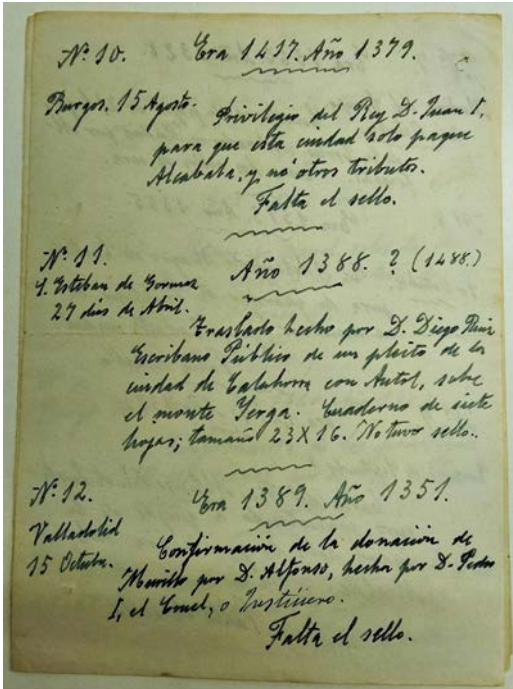 Nº 10. Era 1417. Año 1379.
Burgos. 15 Agosto. Privilegio del Rey D. Juan I,
para que esta ciudad solo pague
Alcabala, y nó otros tributos.
Falta el sello.
Nº 11. Año 1388. ? (1488.)
S. Esteban de Gormaz
27 dias de Abril.
Traslado hecho por D. Diego Ruiz
Escribano Público de un pleito de la
ciudad de Calahorra con Autol, sobre
el monte Yerga. Cuaderno de siete
hojas; tamaño 23X16. No tuvo sello.
Nº 12. Era 1389. Año 1351.
Valladolid
15 Octubre. Confirmación de la donación de
Murillo por D. Alfonso, hecha por D. Pedro
I, el Cruel, o Justiciero.
Falta el sello.